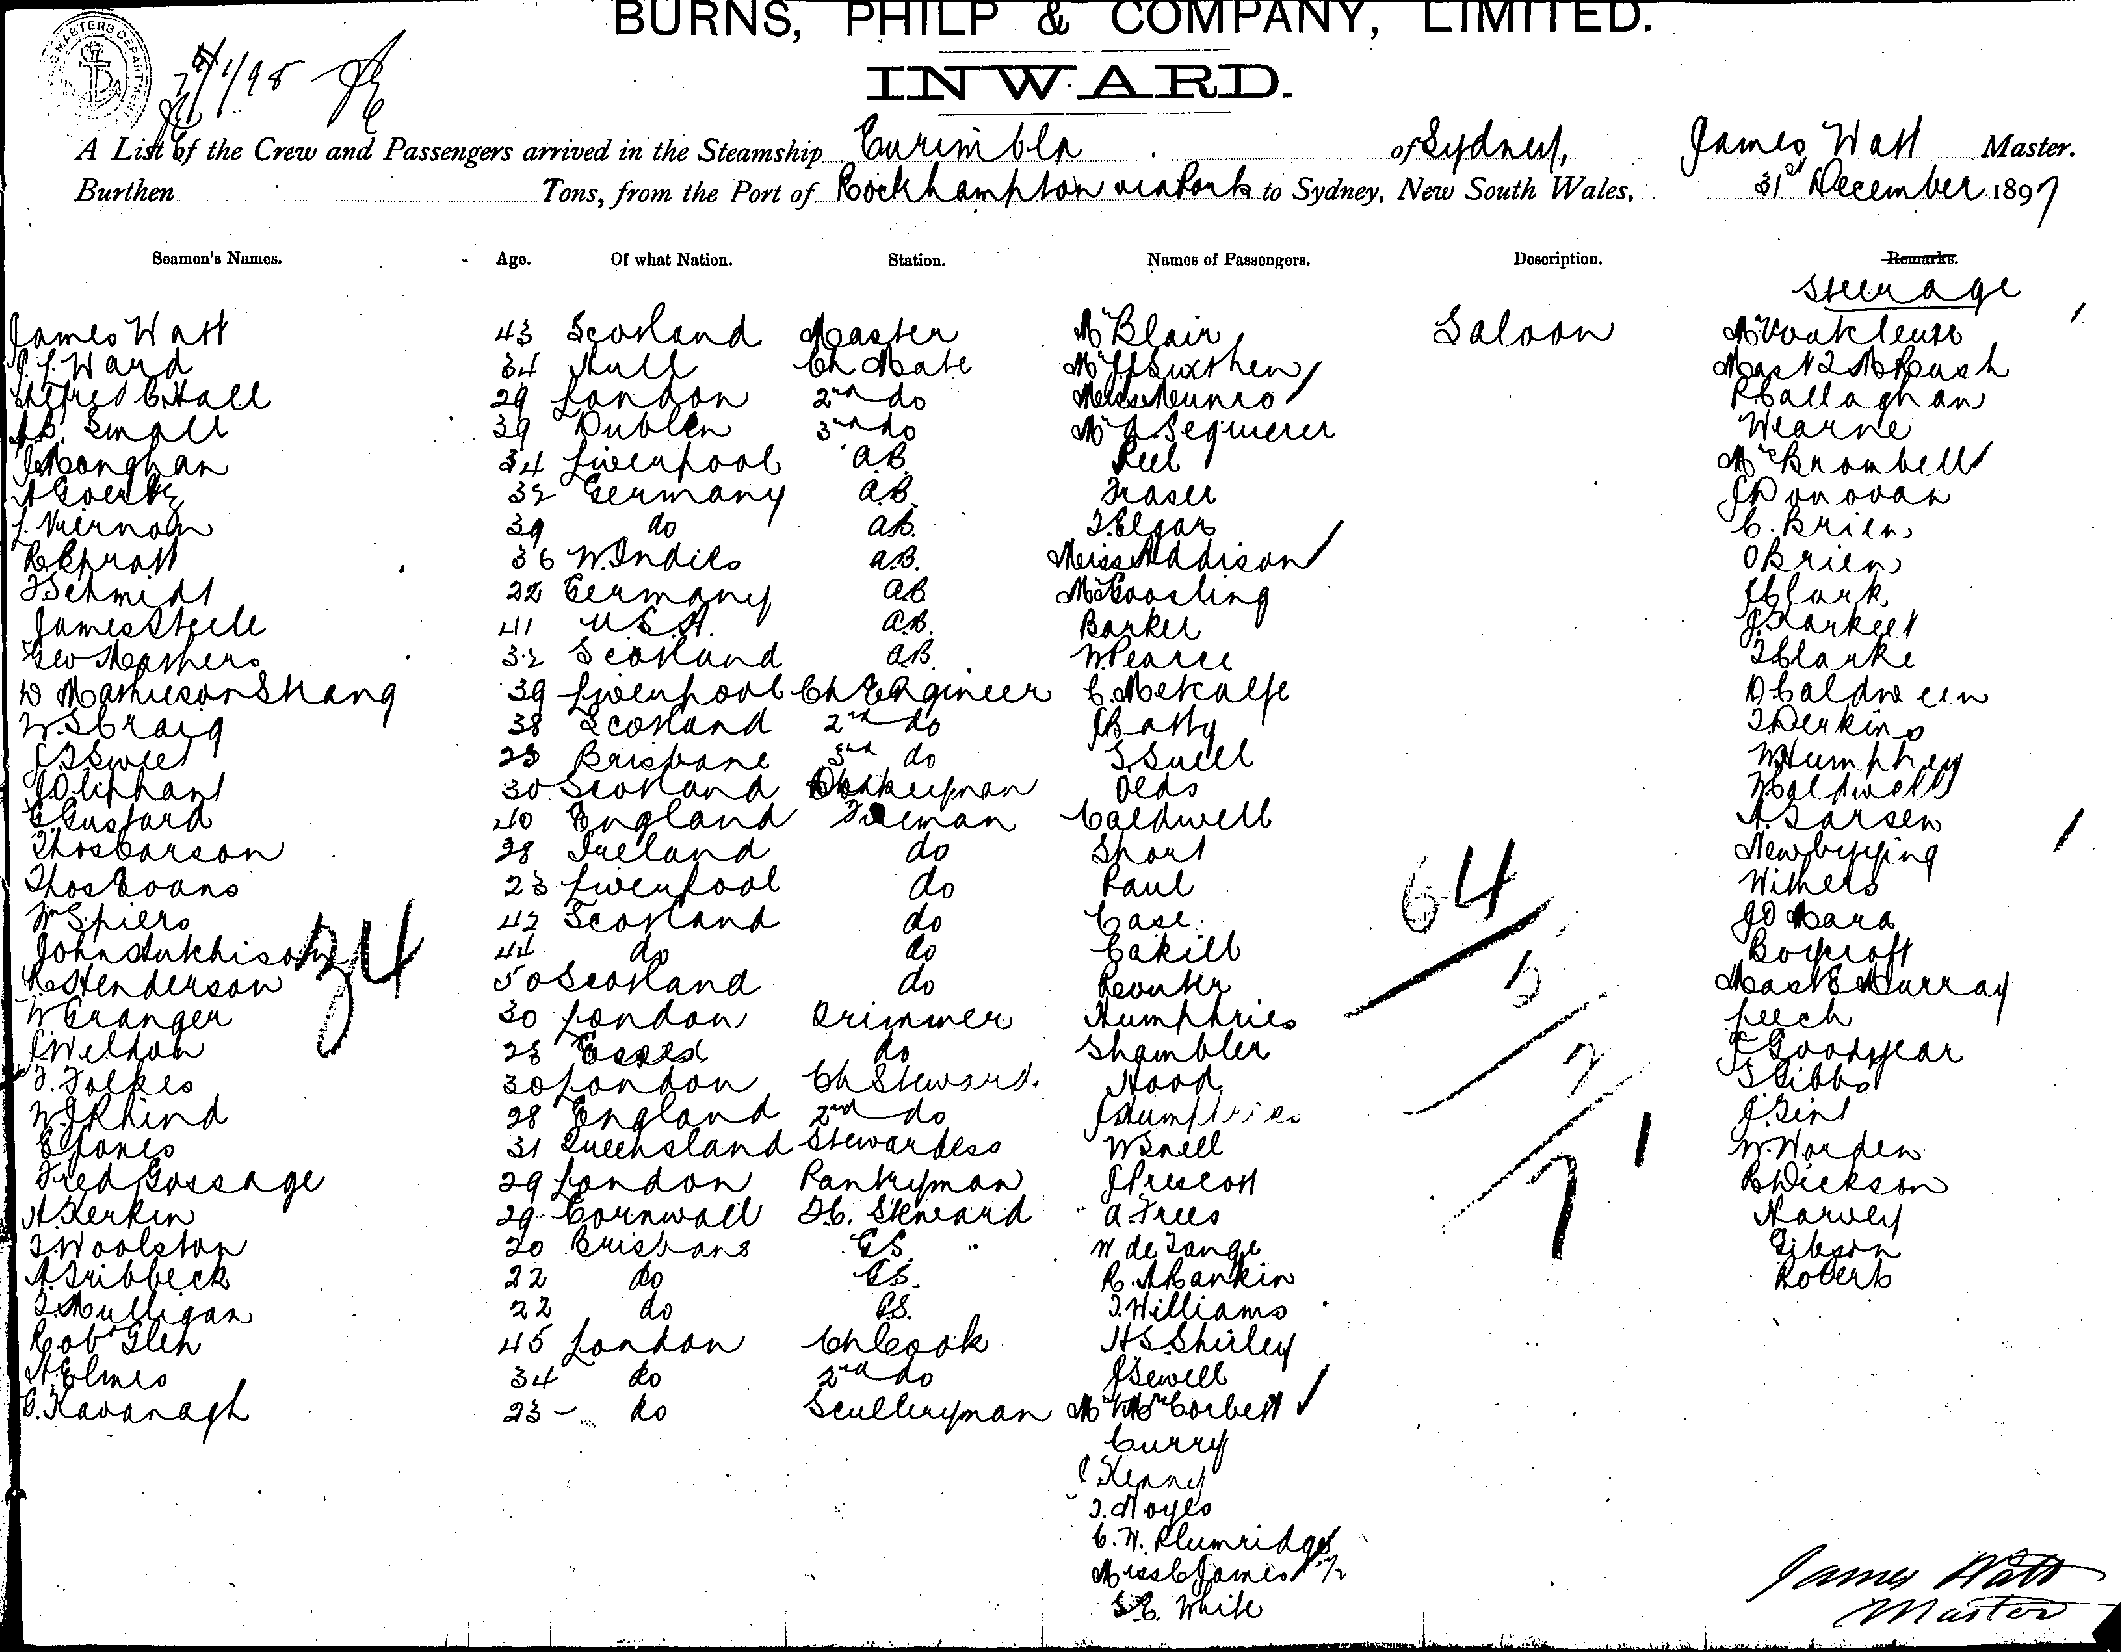 BURNS, PHILP & COMPANY, LIMITED.
INWARD.
A List of the Crew and Passengers arrived in the Steamship Curimbla of Sydney, James Watt Master.
Burthen Tons, from the Port of Rockhampton via Ports to Sydney, New South Wales, 31st December 1897
Seamen's Names. Age. Of what Nation. Station. Names of Passengers. Description. Remarks.
Steerage
James Watt 43 Scotland Master Mr Blair Saloon
Ward 34 Hull Ch Mate
Alfred C Hall 29 London 2nd do Miss Munro
Small 39 Dublin 3rd do Mr A Sequierer Wearne
J Monghan 34 Liverpool A.B. Peel Mrs Brombell
A Goertz 32 Germany A.B. Fraser J Donovan
39 do A.B. T. Elgar C. Brien
R Sprott 36 W. Indies A.B. Miss Addison O Brien
F Schmidt 22 Germany AB Mr Goosling J Clark
James Steele 41 U.S.A. A.B. Barker
Geo Mathers 32 Scotland A.B. W. Pearce T Clarke
D Mathieson Strang 39 Liverpool Ch Engineer C. Metcalfe
W. S Craig 38 Scotland 2nd do J Batty T Perkins
23 Brisbane 3rd do W Humphrey
J Oliphant 30 Scotland Donkeyman Olds
C Gustard 40 England Fireman Caldwell A. Larsen
Thos Carson 28 Ireland do Short Newbigging
Thos Evans 23 Liverpool do Paul Withers
W Spiers 42 Scotland do Case J O Mara
John Hutchison 44 do do Cahill Boycroft
R Henderson 50 Scotland do Mast E Murray
W Granger 30 London Trimmer Humphries Leech
J Weldon 28 Essex do Shambler F Goodyear
T. Folkes 30 London Ch Steward. Hood S Gibbs
W. J Rhind 28 England 2nd do J Humphries
E Jones 31 Queensland Stewardess W Snell W. Worden
Fred Gossage 29 London Pantryman J Prescott R Dickson
A Kerkin 29 Cornwall F.C. Steward A. Trees Harvey
T Woolston 20 Brisbane G.S. W de Lange Gibson
A. Tribbeck 22 do G.S. R. A Rankin Roberts
J. Mulligan 22 do G.S. J. Williams
Robt Glen 45 London Ch Cook H S. Shirley
A Elmes 34 do 2nd do J Sewell
C. Kavanagh 23 do Sculleryman Mr & Mrs Corbett
Curry
Kenny
J. Noyes
C. W. Plumridge
Miss C James 1/2
S. C. White
34
64
5
2
71
James Watt
Master